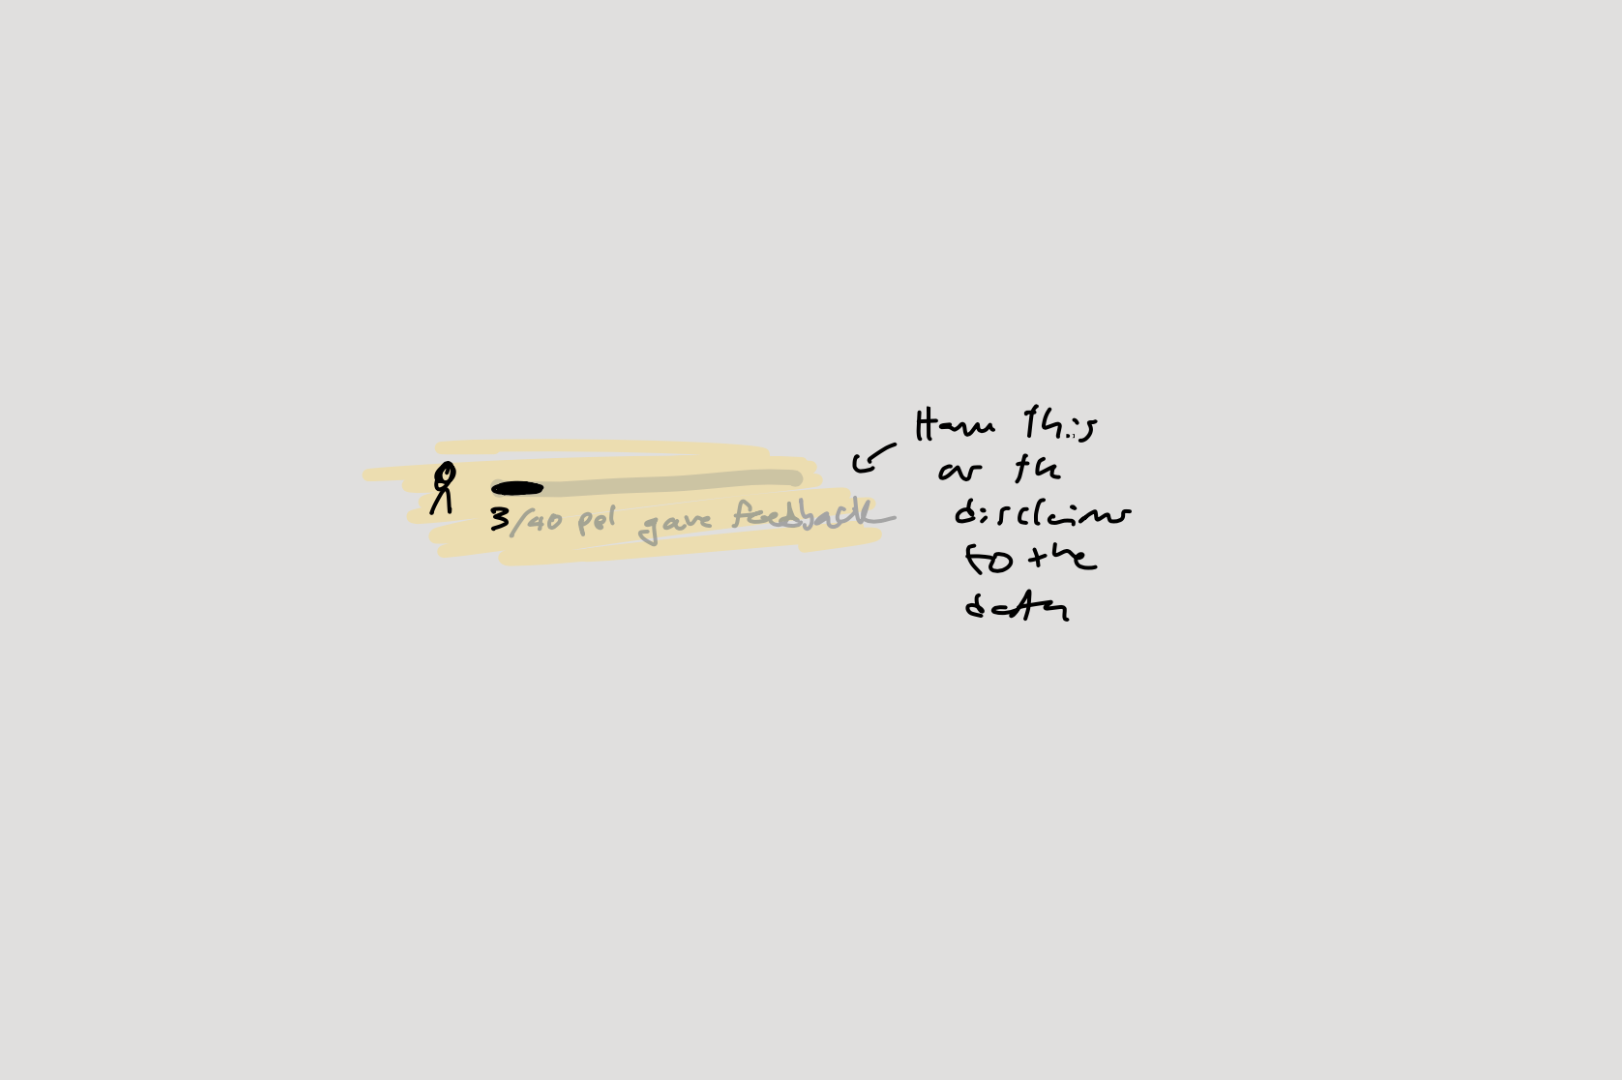 3/40 ppl gave feedback
Have this
as the
disclaimer
to the
data